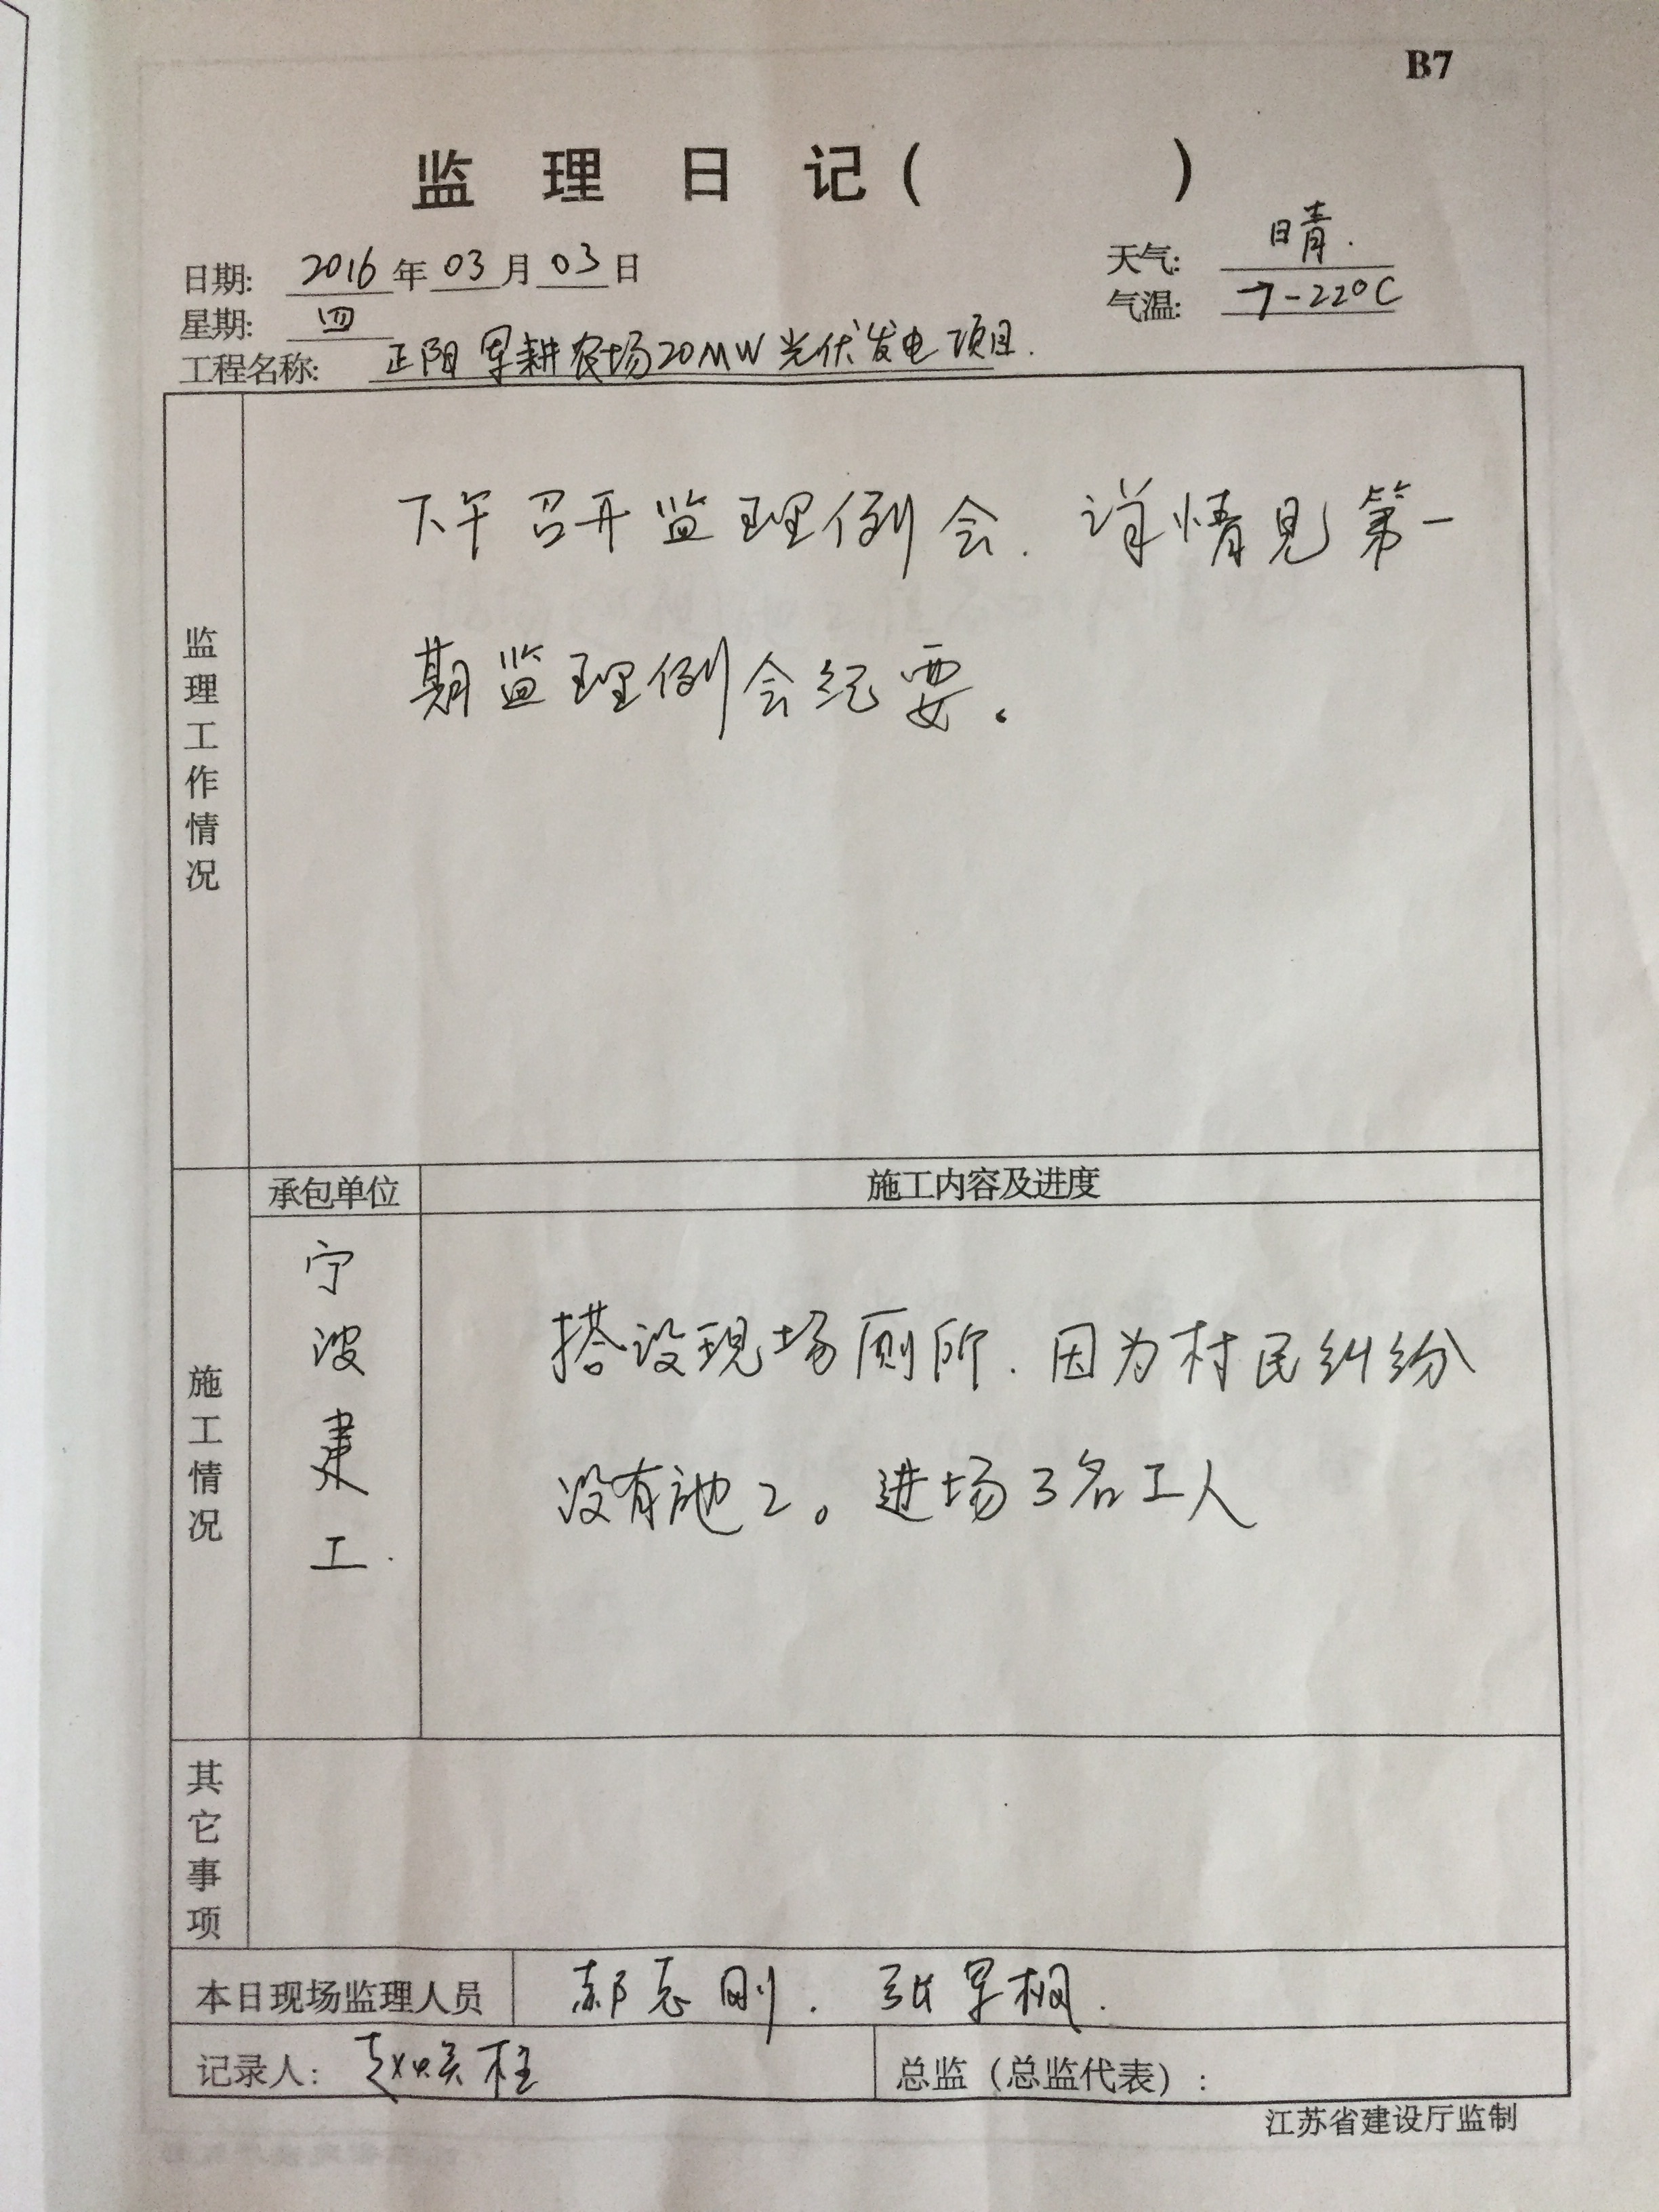 B7
监 理 日 记（ ）
日期: 2016 年 03 月 03 日
天气: 晴.
星期: 四
气温: 7-22°C
工程名称: 正阳军耕农场20MW光伏发电项目.
监理工作情况
下午召开监理例会. 详情见第一
期监理例会纪要。
施工情况
承包单位
施工内容及进度
宁波建工.
搭设现场厕所. 因为村民纠纷
没有施工。进场3名工人
其它事项
本日现场监理人员 郝志刚. 张军桐.
记录人: 赵 柱
总监（总监代表）:
江苏省建设厅监制